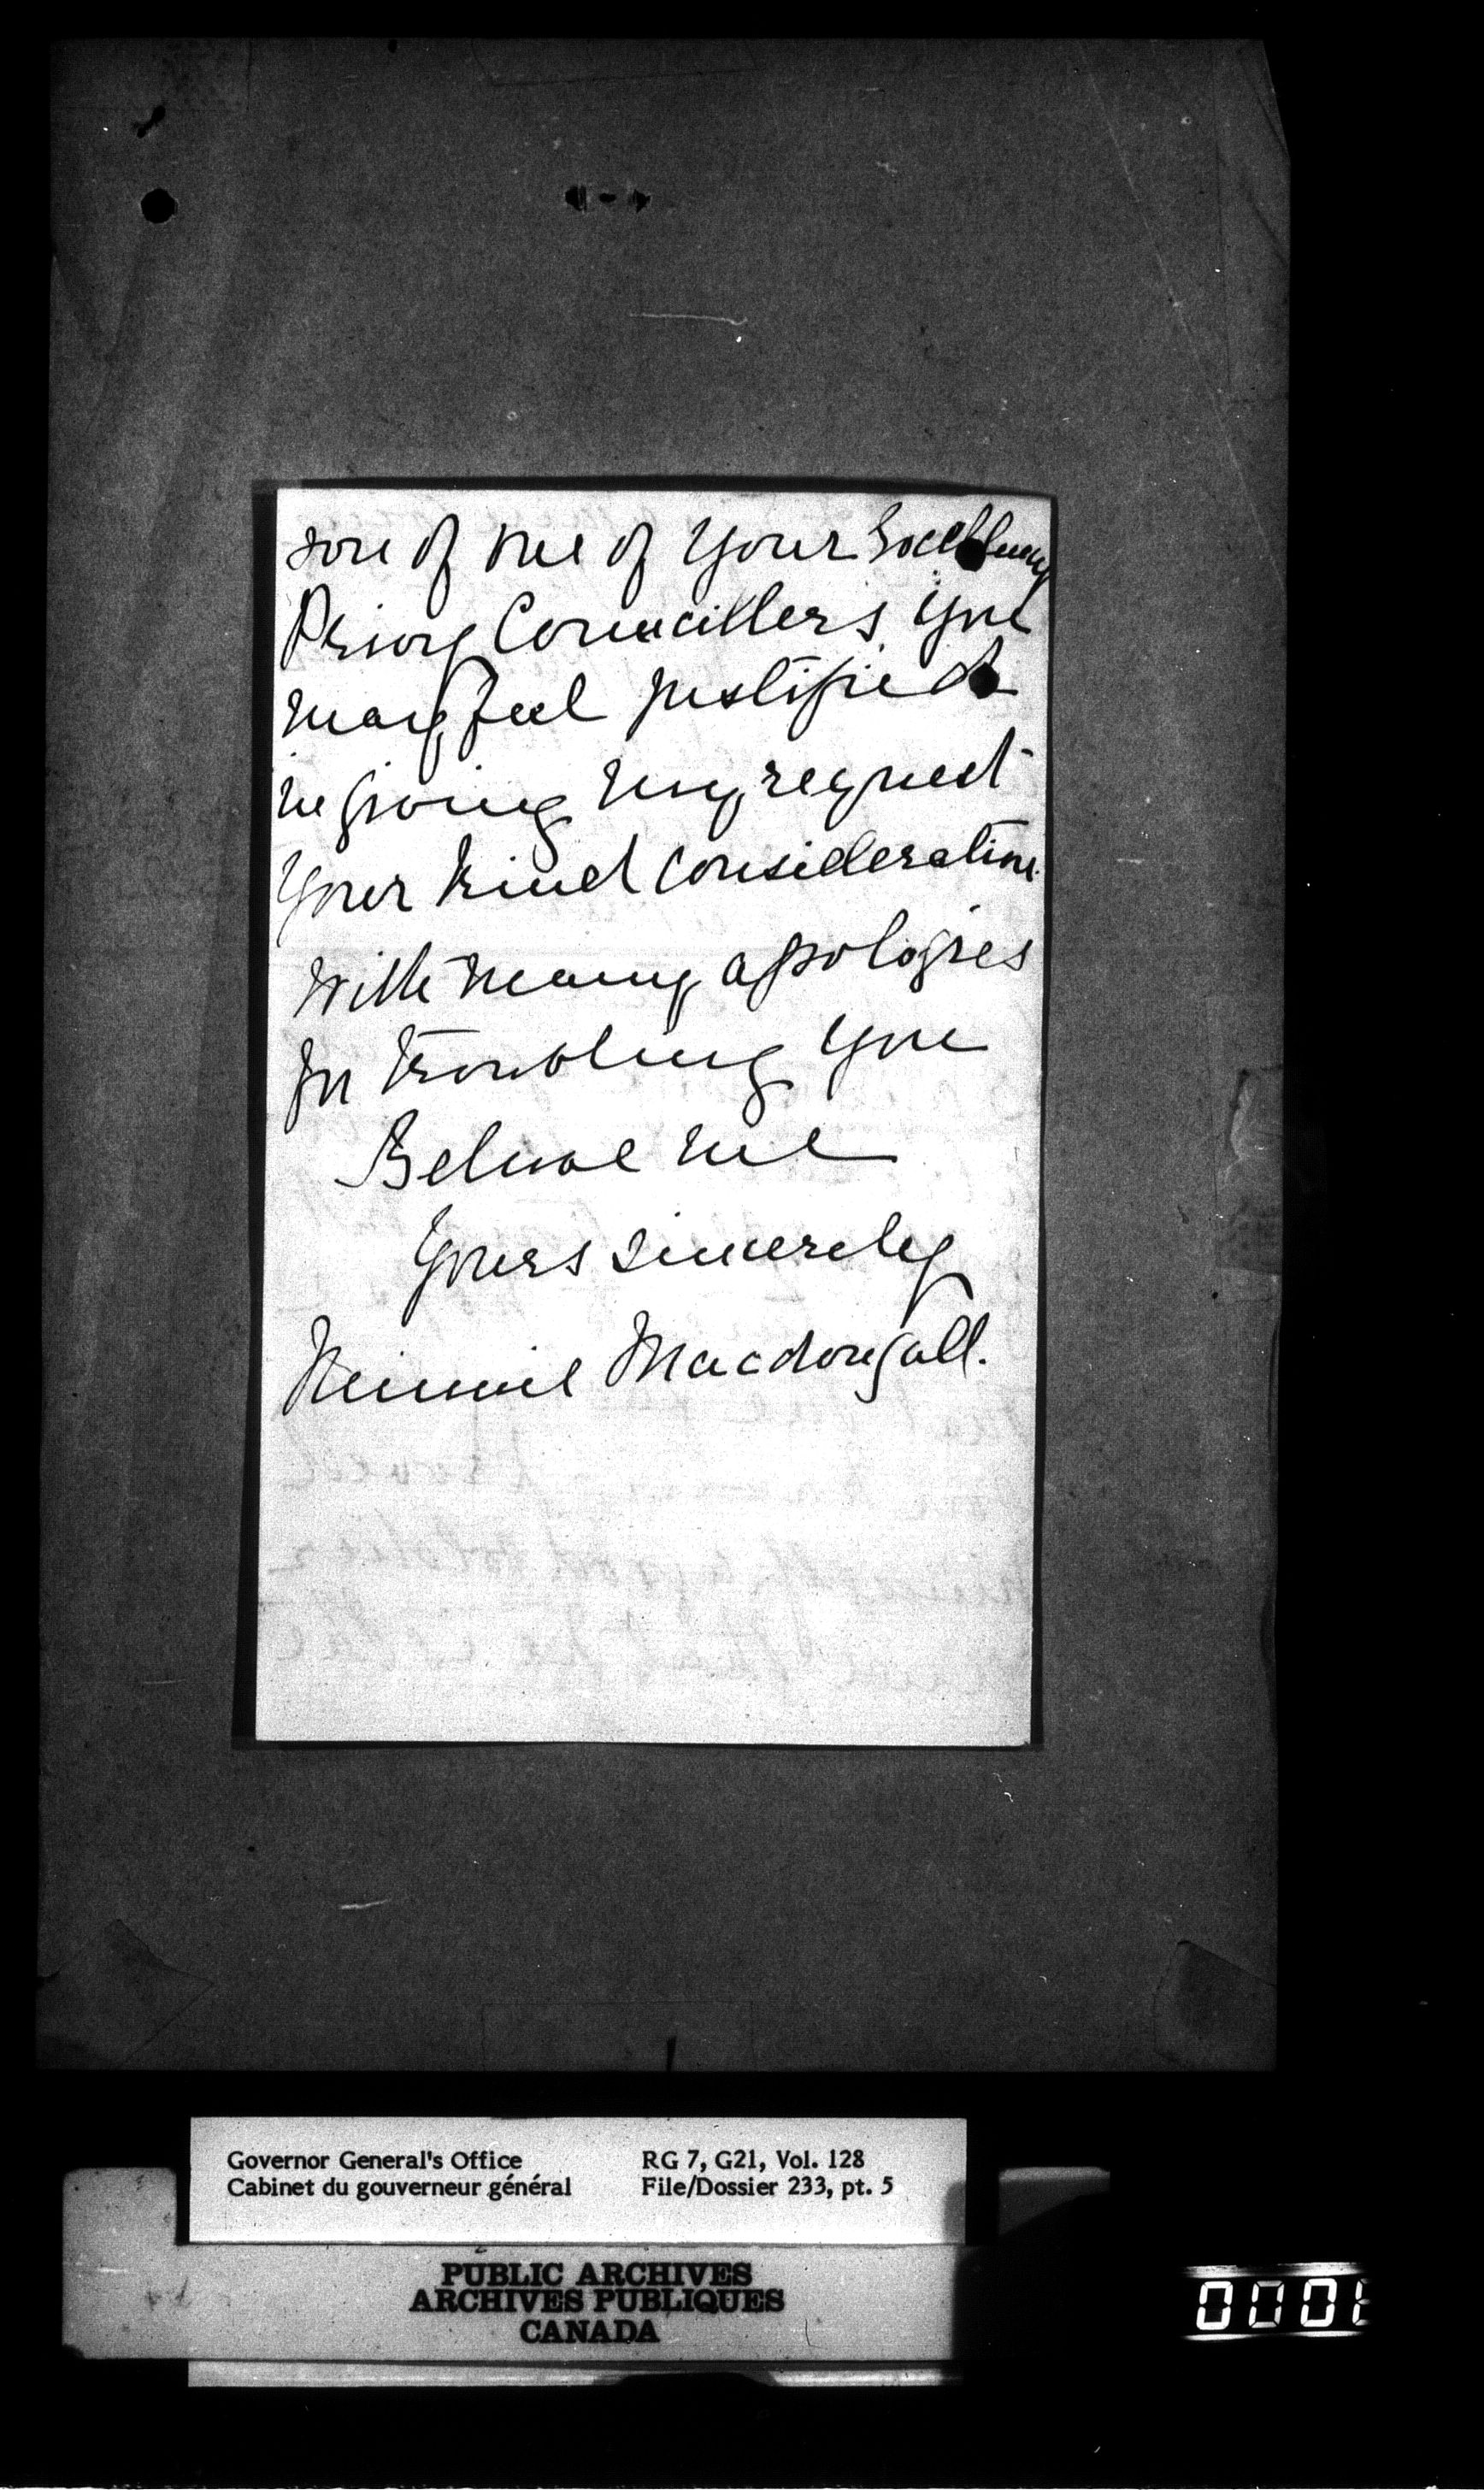 son of one of your Excellency
Privy Councillers you
may feel justified
in giving my request
your kind consideration.
With many apologies
for troubling you
Believe me
Yours sincerely
Minnie Macdougall.
Governor General's Office RG 7, G21, Vol. 128
Cabinet du gouverneur général File/Dossier 233, pt. 5
PUBLIC ARCHIVES
ARCHIVES PUBLIQUES
CANADA
0001